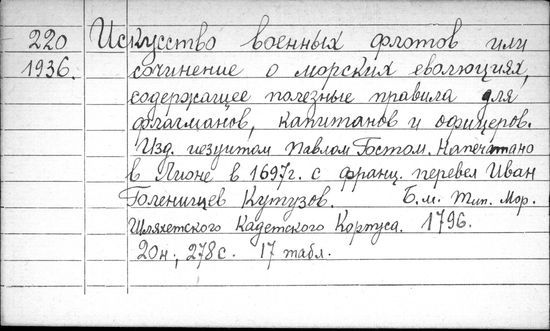 220 Искусство военных флотов или
1936. сочинение о морских еволюциях,
содержащее полезные правила для
флагманов, капитанов и офицеров.
Изд. иезуитом Павлом Гостом. Напечатано
в Лионе в 1697г. с франц. перевел Иван
Голенищев Кутузов. Б.м. Тип. Мор.
Шляхетского Кадетского Корпуса. 1796.
20н., 278с. 17 табл.